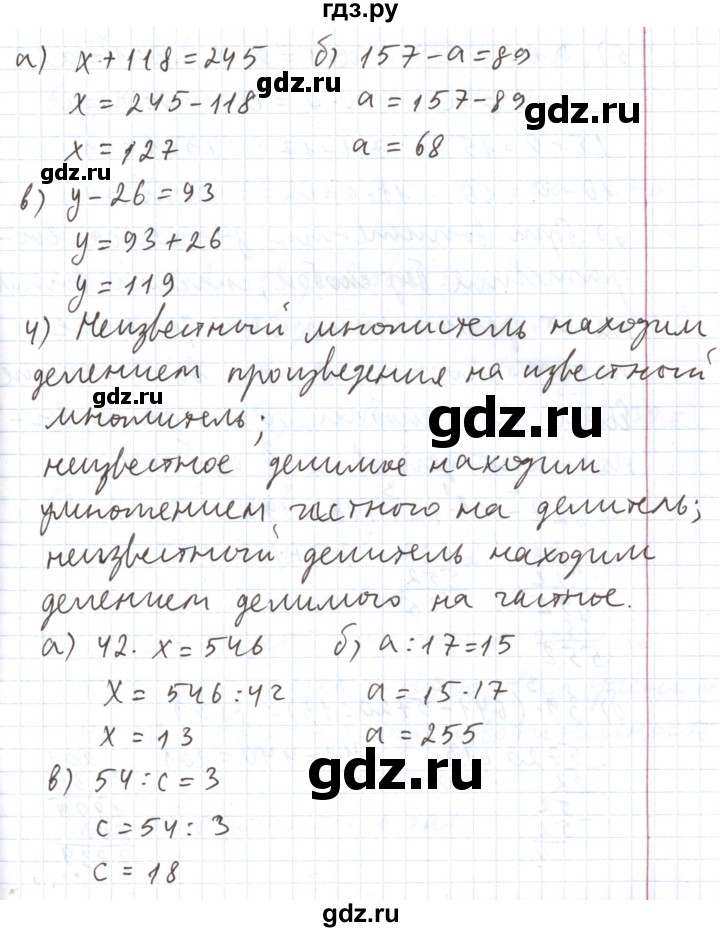 гдз.ру
а) x+118=245 б) 157-a=89
gdz.ru gdz.ru
x=245-118 a=157-89
x=127 a=68
gdz.ru
в) y-26=93
y=93+26
y=119
4) Неизвестный множитель находим
делением произведения на известный
gdz.ru gdz.ru
множитель;
неизвестное делимое находим
умножением частного на делитель;
неизвестный делитель находим
делением делимого на частное.
а) 42·x=546 б) a:17=15
x=546:42 a=15·17
x=13 a=255
gdz.ru gdz.ru
в) 54:c=3
c=54:3
c=18
gdz.ru